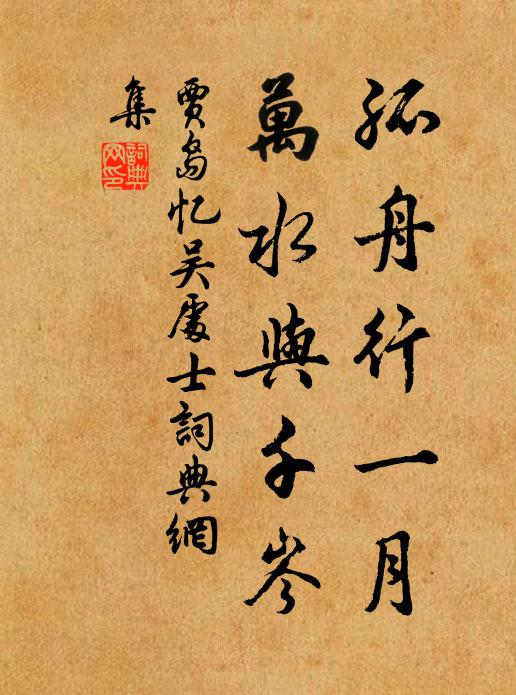 孤舟行一月
萬水與千岑
賈島忆吴處士詞典網
集
詞典網印